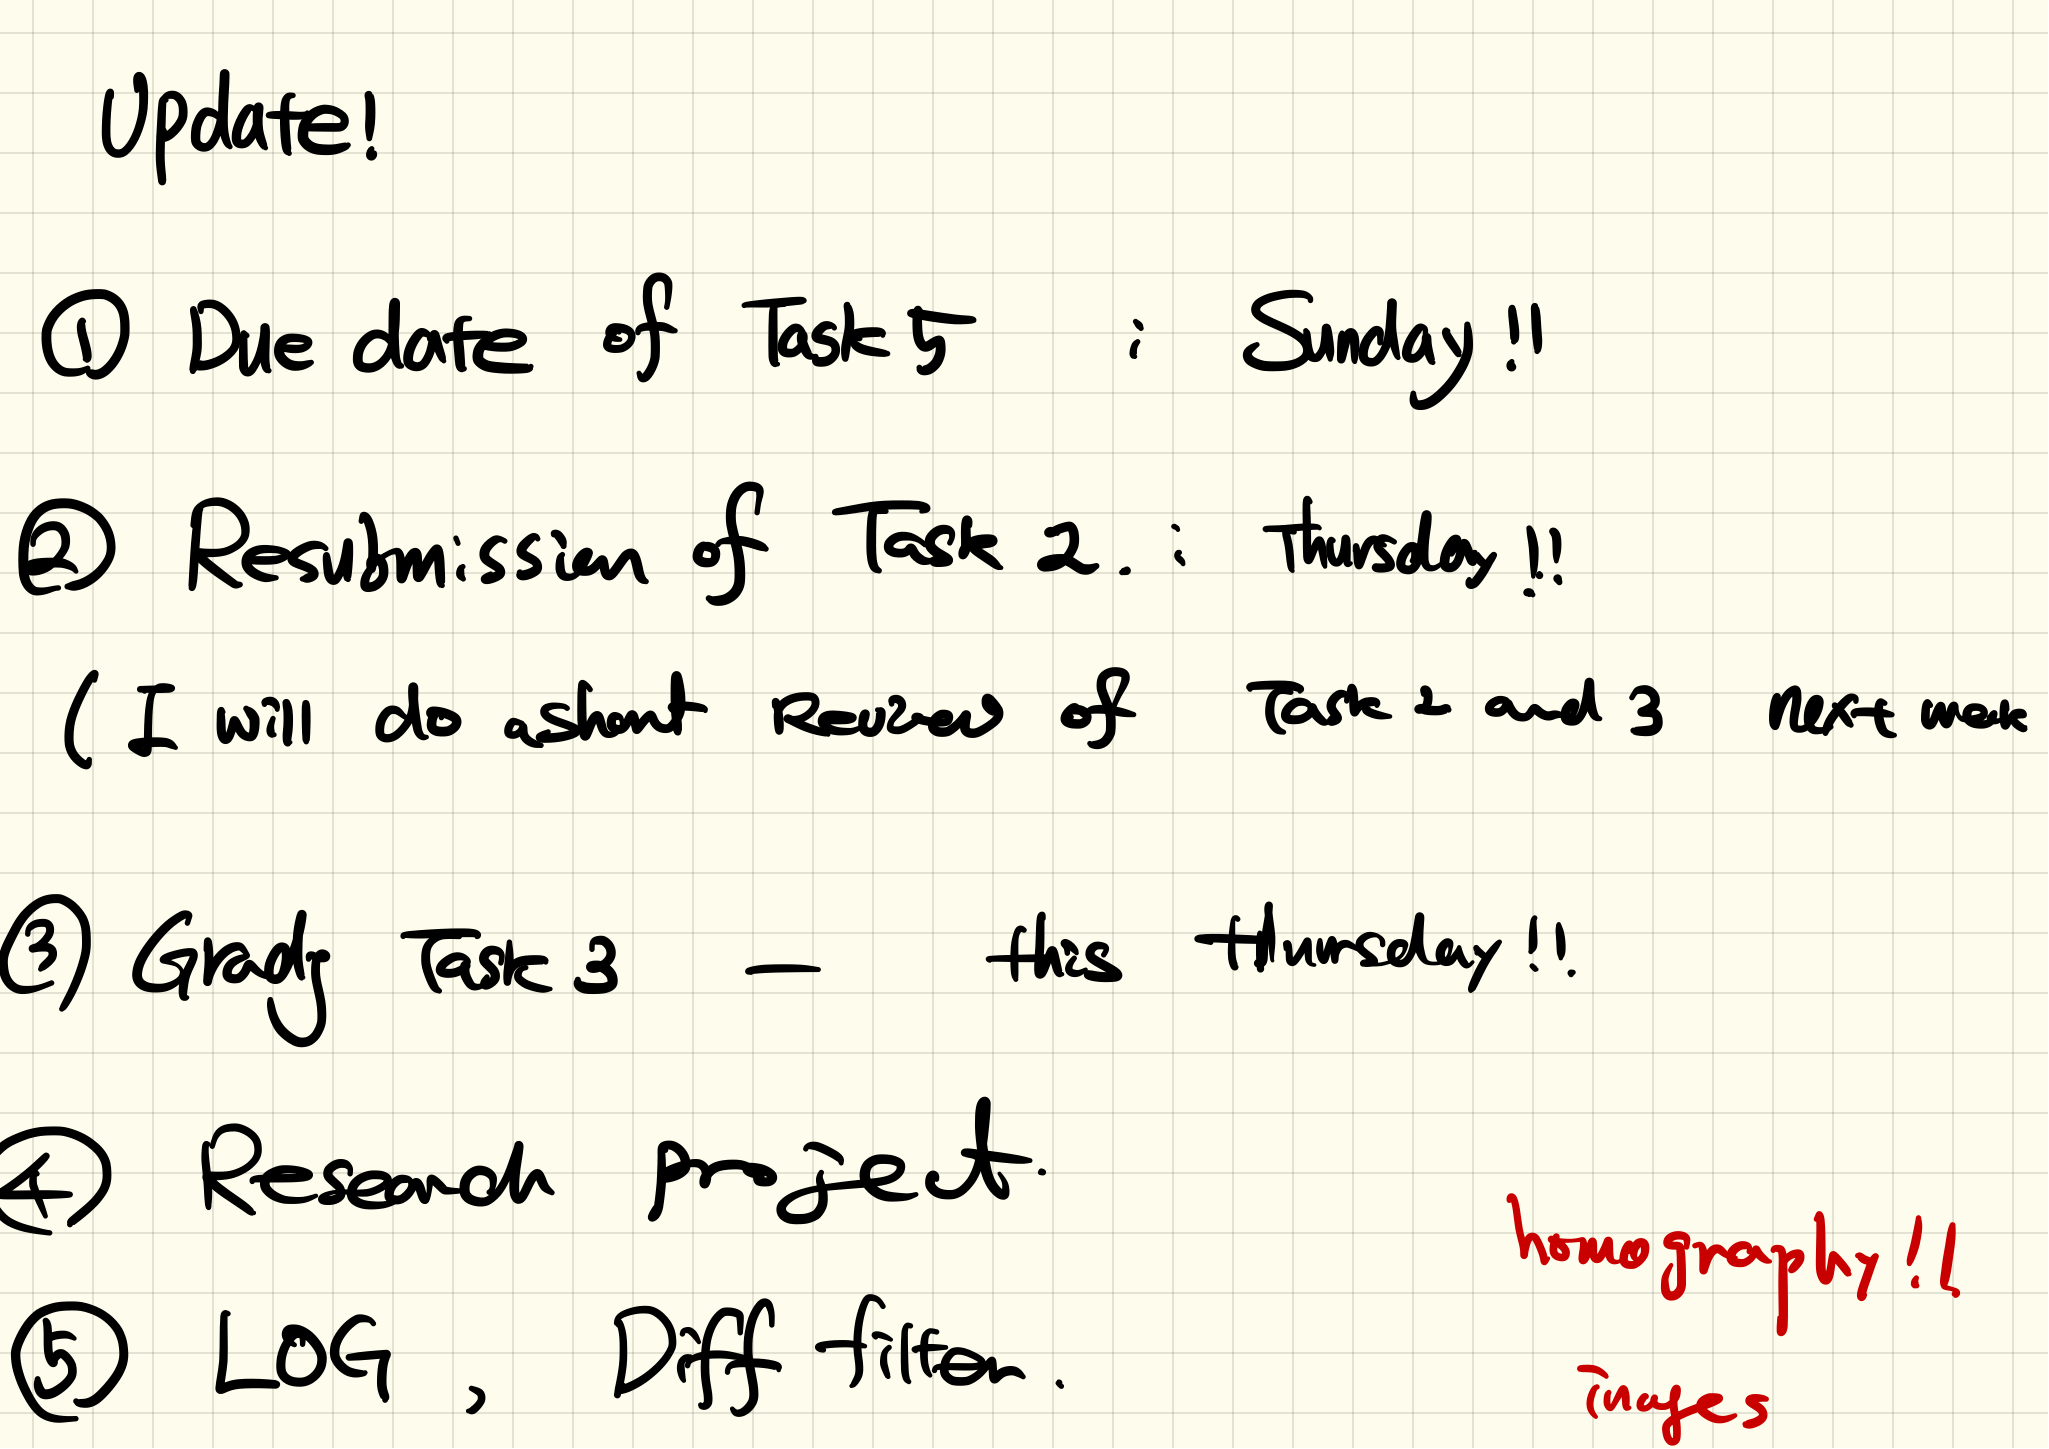 Update!
① Due date of Task 5 : Sunday!!
② Resubmission of Task 2. : Thursday!!
(I will do a short Review of Task 2 and 3 next week
③ Grady Task 3 — this thursday!!
④ Research project.
homography!!
⑤ LOG, Diff filter.
images